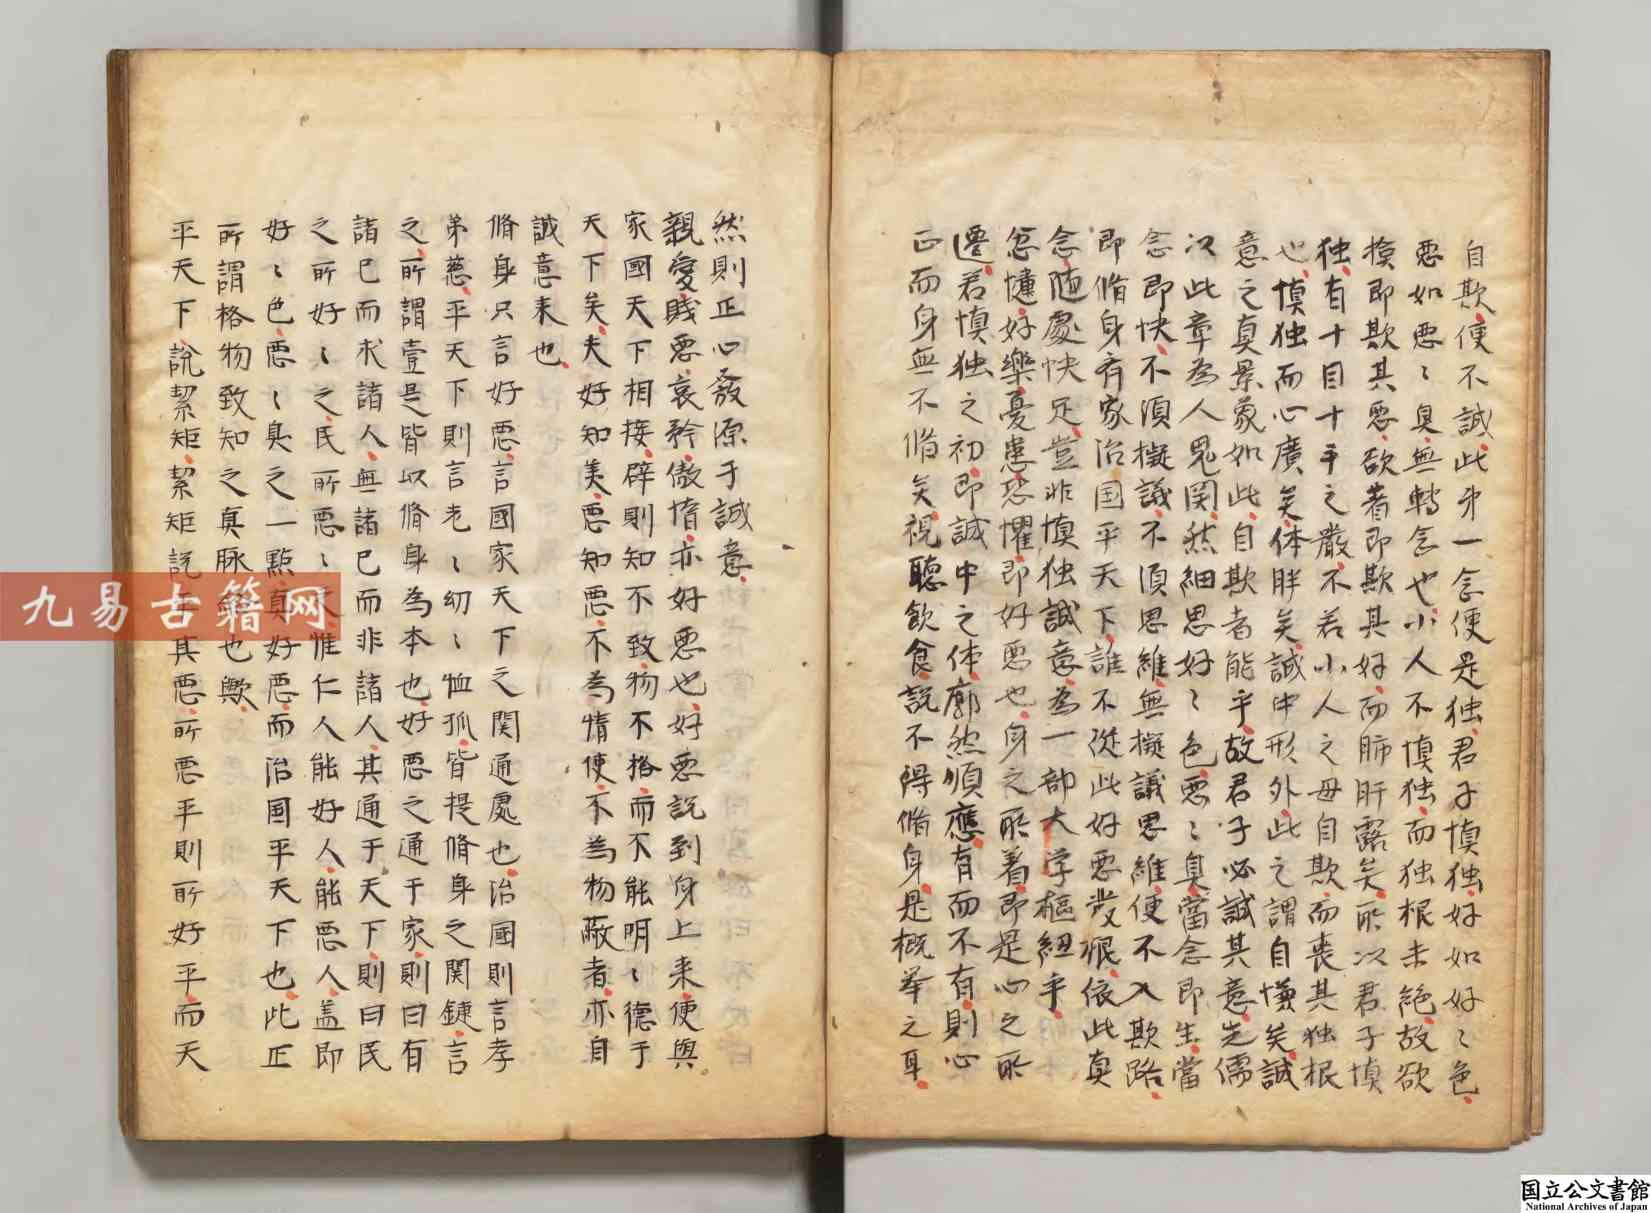 自欺便不誠此才一念便是独君子慎独好如好〻色
悪如悪〻臭無轉念也小人不慎独而独根未絶故欲
揜即欺其悪欲著即欺其好而肺肝露矣所以君子慎
独有十目十手之嚴不若小人之毋自欺而喪其独根
也慎独而心廣矣体胖矣誠中形外此之謂自慊矣誠
意之真景象如此自欺者能乎故君子必誠其意先儒
以此章為人鬼関然細思好〻色悪〻臭當念即生當
念即快不須擬議不須思維無擬議思維便不入欺路
即脩身斉家治国平天下誰不從此好悪發根依此真
念随處快足豈非慎独誠意為一部大学樞紐乎
忿懥好樂憂患恐懼即好悪也身之所着即是心之所
遷君慎独之初即誠中之体廓然順應有而不有則心
正而身無不脩矣視聽飲食説不得脩身是概挙之耳
然則正心發源于誠意
親愛賤悪哀矜傲惰亦好悪也好悪説到身上来便與
家國天下相接辟則知不致物不格而不能明〻德于
天下矣夫好知美悪知悪不為情使不為物蔽者亦自
誠意来也
脩身只言好悪言國家天下之関通處也治國則言孝
弟慈平天下則言老〻幼〻恤孤皆提脩身之関鍵言
之所謂壹是皆以脩身為本也好悪之通于家則曰有
諸已而求諸人無諸已而非諸人其通于天下則曰民
之所好〻之民所悪〻之惟仁人能好人能悪人盖即
好〻色悪〻臭之一點真好悪而治国平天下也此正
所謂格物致知之真脉也歟
平天下説絜矩絜矩説平其悪所悪平則所好平而天
九易古籍网
国立公文書館
National Archives of Japan